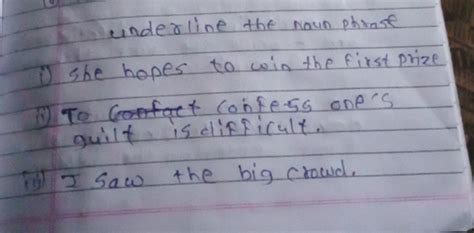 underline the noun phrase
i) she hopes to win the first prize
ii) To confess one's
guilt is difficult.
iii) I saw the big crowd.